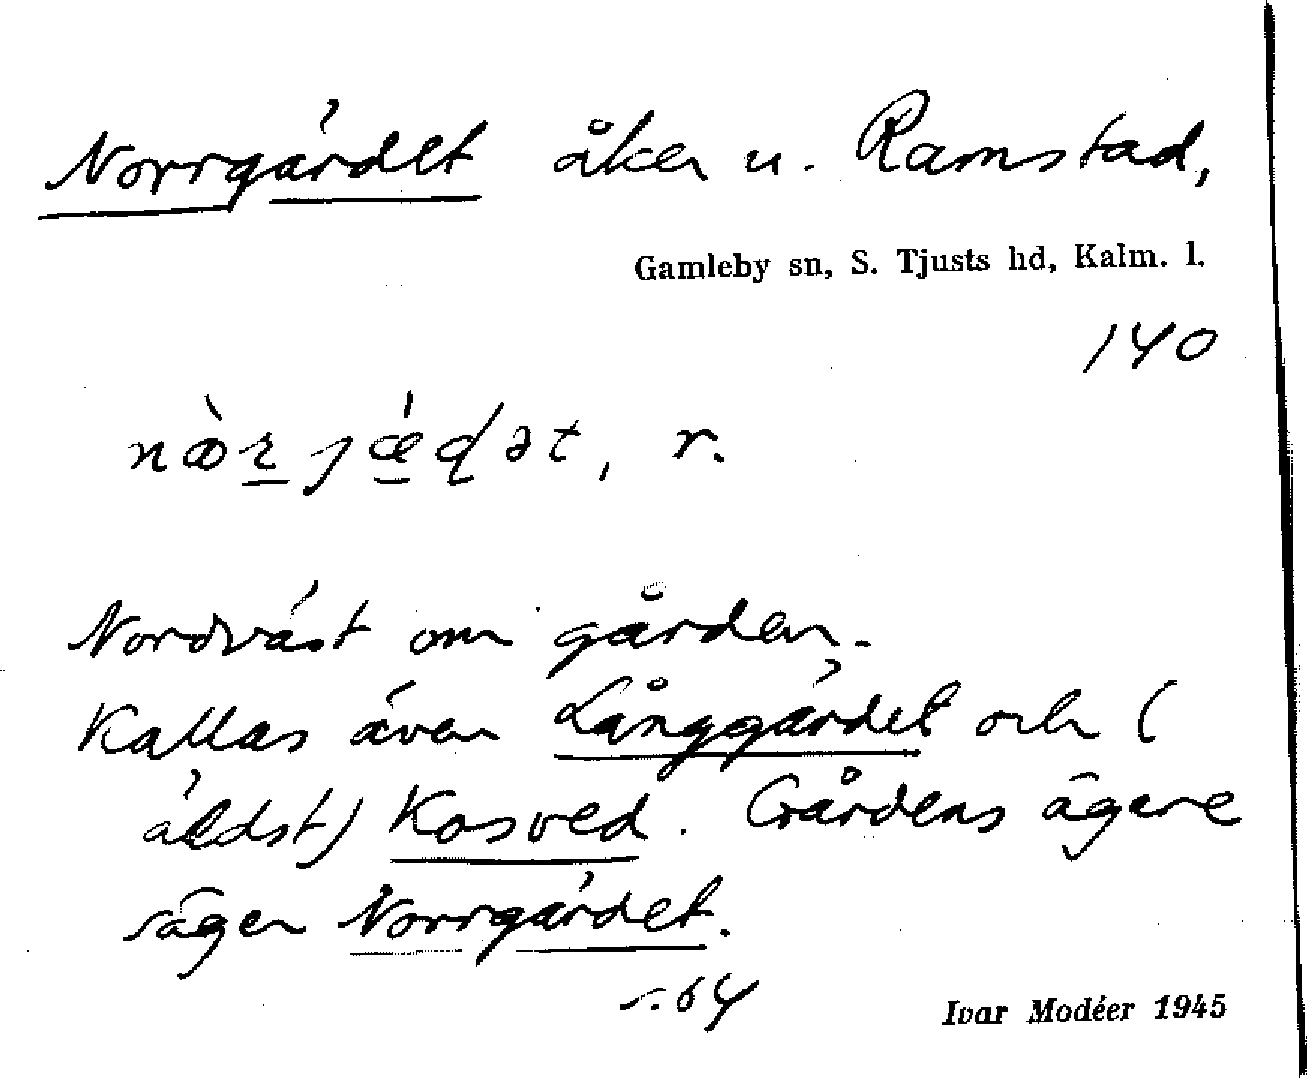 Norrgärdet åker u. Ramstad,
Gamleby sn, S. Tjusts hd, Kalm. l.
140
r.
Nordväst om gården.
Kallas även Långgärdet och (
äldst) Kosved. Gårdens ägare
säger Norrgärdet.
s. 64
Ivar Modéer 1945